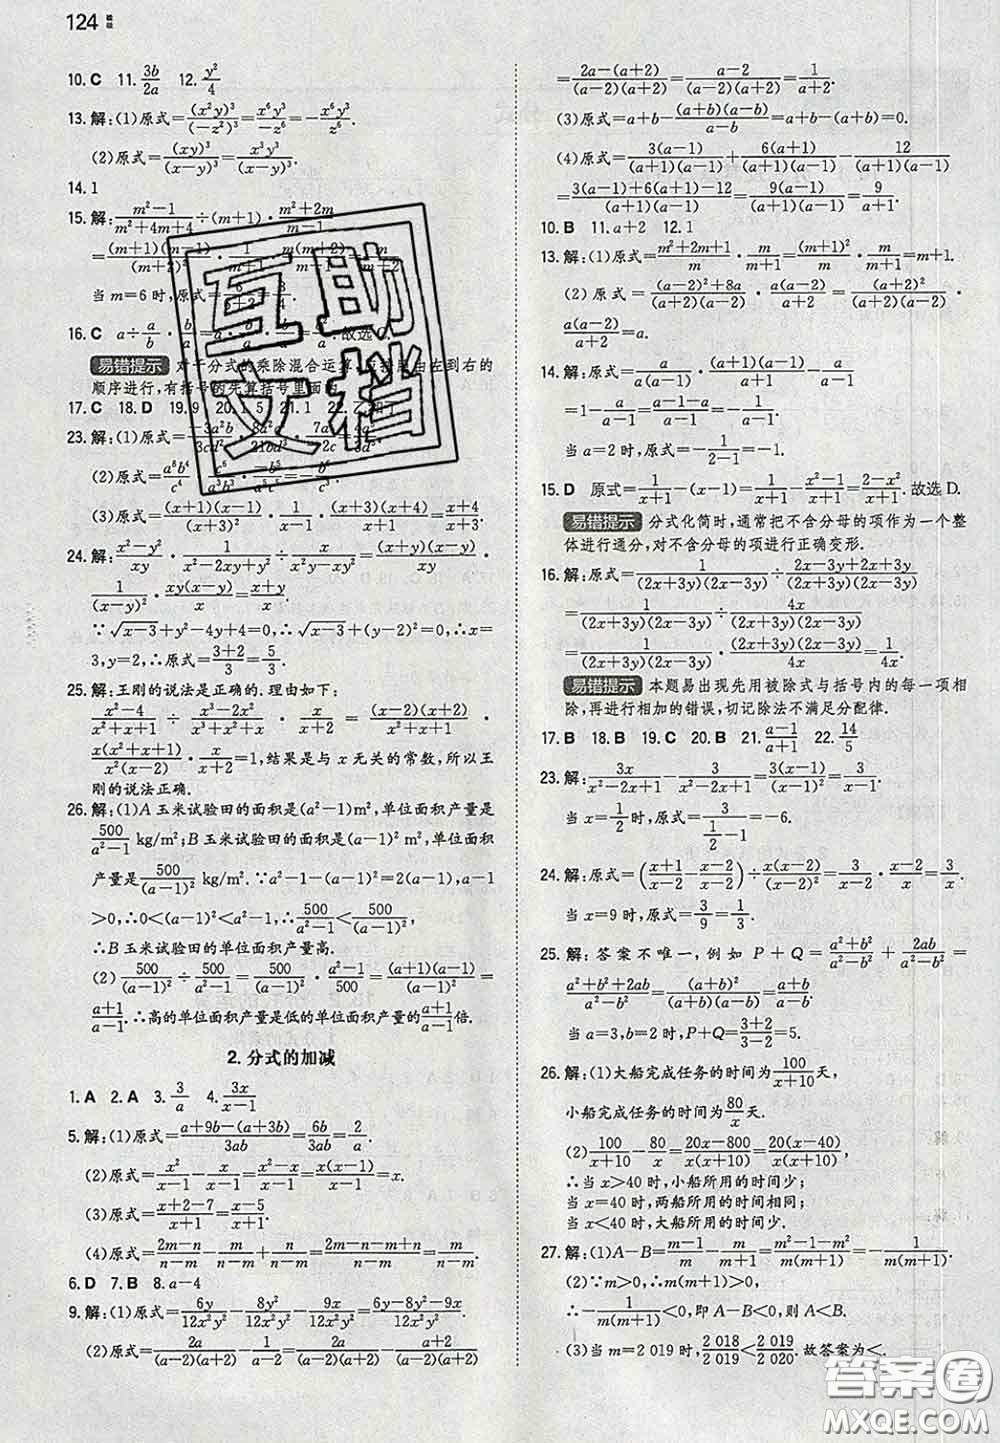 124
10. C 11. 3b/2a 12. y²/4
13. 解:(1)原式=(x²y)³/(−z²)³=x⁶y³/−z⁶=−x⁶y³/z⁶.
(2)原式=(xy)³/(x−y)³=x³y³/(x−y)³.
14. 1
15. 解:(m²−1)/(m²+4m+4)÷(m+1)·(m²+2m)/(m−1)
当 m=6 时,原式=
16. C a÷a/b·b/a=a·
易错提示 对于分式的乘除混合运算,应按照由左到右的
顺序进行,有括号的先算括号里面的.
17. C 18. D 19. 9 20. 1.5 21. 1 22.
23. 解:(1)原式=
(2)原式=a⁸b⁴/c⁴
(3)原式=(x+1)(x−1)/(x+3)²·1/(x−1)·(x+3)(x+4)/(x+1)=(x+4)/(x+3).
24. 解:(x²−y²)/xy·1/(x²−2xy+y²)÷x/(x²y−xy²)=(x+y)(x−y)/xy·
1/(x−y)²·xy(x−y)/x=(x+y)/x.
∵√(x−3)+y²−4y+4=0,∴√(x−3)+(y−2)²=0,∴x=
3,y=2,∴原式=(3+2)/3=5/3.
25. 解:王刚的说法是正确的. 理由如下:
(x²−4)/(x²+x+1)÷(x³−2x²)/(x³+x²+x)·x/(x+2)=(x−2)(x+2)/(x²+x+1)·
x(x²+x+1)/x²(x−2)·x/(x+2)=1,结果是与 x 无关的常数,所以王
刚的说法正确.
26. 解:(1)A 玉米试验田的面积是(a²−1)m²,单位面积产量是
500/(a²−1) kg/m²;B 玉米试验田的面积是(a−1)² m²,单位面积
产量是500/(a−1)² kg/m². ∵a²−1−(a−1)²=2(a−1),a−1
>0,∴0<(a−1)²<a²−1,∴500/(a²−1)<500/(a−1)².
∴B 玉米试验田的单位面积产量高.
(2)500/(a−1)²÷500/(a²−1)=500/(a−1)²·(a²−1)/500=(a+1)(a−1)/(a−1)²=
(a+1)/(a−1).∴高的单位面积产量是低的单位面积产量的(a+1)/(a−1)倍.
2. 分式的加减
1. A 2. A 3. 3/a 4. 3x/(x−1)
5. 解:(1)原式=(a+9b−(a+3b))/3ab=6b/3ab=2/a.
(2)原式=x²/(x−1)−x/(x−1)=(x²−x)/(x−1)=x(x−1)/(x−1)=x.
(3)原式=(x+2−7)/(x+1)=(x−5)/(x+1).
(4)原式=(2m−n)/(n−m)+m/(n−m)+n/(n−m)=(2m−n+m+n)/(n−m)=3m/(n−m).
6. D 7. B 8. a−4
9. 解:(1)原式=6y/12x²y²−8y²/12x²y²−9x/12x²y²=(6y−8y²−9x)/12x²y².
(2)原式=2a/(a−2)(a+2)−1/(a−2)=2a/(a−2)(a+2)−(a+2)/(a−2)(a+2)
=(2a−(a+2))/(a−2)(a+2)=(a−2)/(a−2)(a+2)=1/(a+2).
(3)原式=a+b−(a²−b²)/(a−b)=a+b−(a+b)(a−b)/(a−b)=a+b−(a+b)=0.
(4)原式=3(a−1)/(a+1)(a−1)+6(a+1)/(a+1)(a−1)−12/(a+1)(a−1)
=(3(a−1)+6(a+1)−12)/(a+1)(a−1)=9(a−1)/(a+1)(a−1)=9/(a+1).
10. B 11. a+2 12. 1
13. 解:(1)原式=(m²+2m+1)/m·m/(m+1)=(m+1)²/m·m/(m+1)=m+1.
(2)原式=((a−2)²+8a)/(a+2)(a−2)·a(a−2)/(a+2)=(a+2)²/(a+2)(a−2)·
a(a−2)/(a+2)=a.
=1−a/(a−1)=(a−1−a)/(a−1)=−1/(a−1).
当 a=2 时,原式=−1/(2−1)=−1.
15. D 原式=1/(x+1)−(x−1)=1/(x+1)−(x²−1)/(x+1)=(2−x²)/(x+1).故选 D.
易错提示 分式化简时,通常把不含分母的项作为一个整
体进行通分,对不含分母的项进行正确变形.
16. 解:原式=1/(2x+3y)(2x−3y)÷(2x−3y+2x+3y)/(2x+3y)(2x−3y)
=1/(2x+3y)(2x−3y)÷4x/(2x+3y)(2x−3y)
=1/(2x+3y)(2x−3y)·(2x+3y)(2x−3y)/4x=1/4x.
易错提示 本题易出现先用被除式与括号内的每一项相
除,再进行相加的错误,切记除法不满足分配律.
17. B 18. B 19. C 20. B 21. (a−1)/(a+1) 22. 14/5
23. 解:3x/(x²−1)−3/(x²−1)=(3x−3)/(x²−1)
当 x=1/2 时,原式=3/(1/2−1)=−6.
24. 解:原式=((x+1)/(x−2)−(x−2)/(x−2))÷x(x−2)/(x−2)²=3/(x−2)·(x−2)/x=3/x.
当 x=9 时,原式=3/9=1/3.
25. 解:答案不唯一,例如 P+Q=(a²+b²)/(a²−b²)+2ab/(a²−b²)=
(a²+b²+2ab)/(a²−b²)=(a+b)²/(a+b)(a−b)=(a+b)/(a−b).
当 a=3,b=2 时,P+Q=(3+2)/(3−2)=5.
26. 解:(1)大船完成任务的时间为100/(x+10)天,
小船完成任务的时间为80/x天.
(2)100/(x+10)−80/x=(20x−800)/x(x+10)=20(x−40)/x(x+10).
∴当 x>40 时,小船所用的时间少;
当 x=40 时,两船所用的时间相同;
当 x<40 时,大船所用的时间少.
27. 解:(1)A−B=(m−1)/m−m/(m+1)=(m²−1−m²)/m(m+1)=−1/m(m+1).
(2)∵m>0,∴m(m+1)>0,
∴−1/m(m+1)<0,即 A−B<0,则 A<B.
(3)当 m=2 019 时,2 018/2 019<2 019/2 020.故答案为<.
互助
文档
答案圈
MXQE.COM